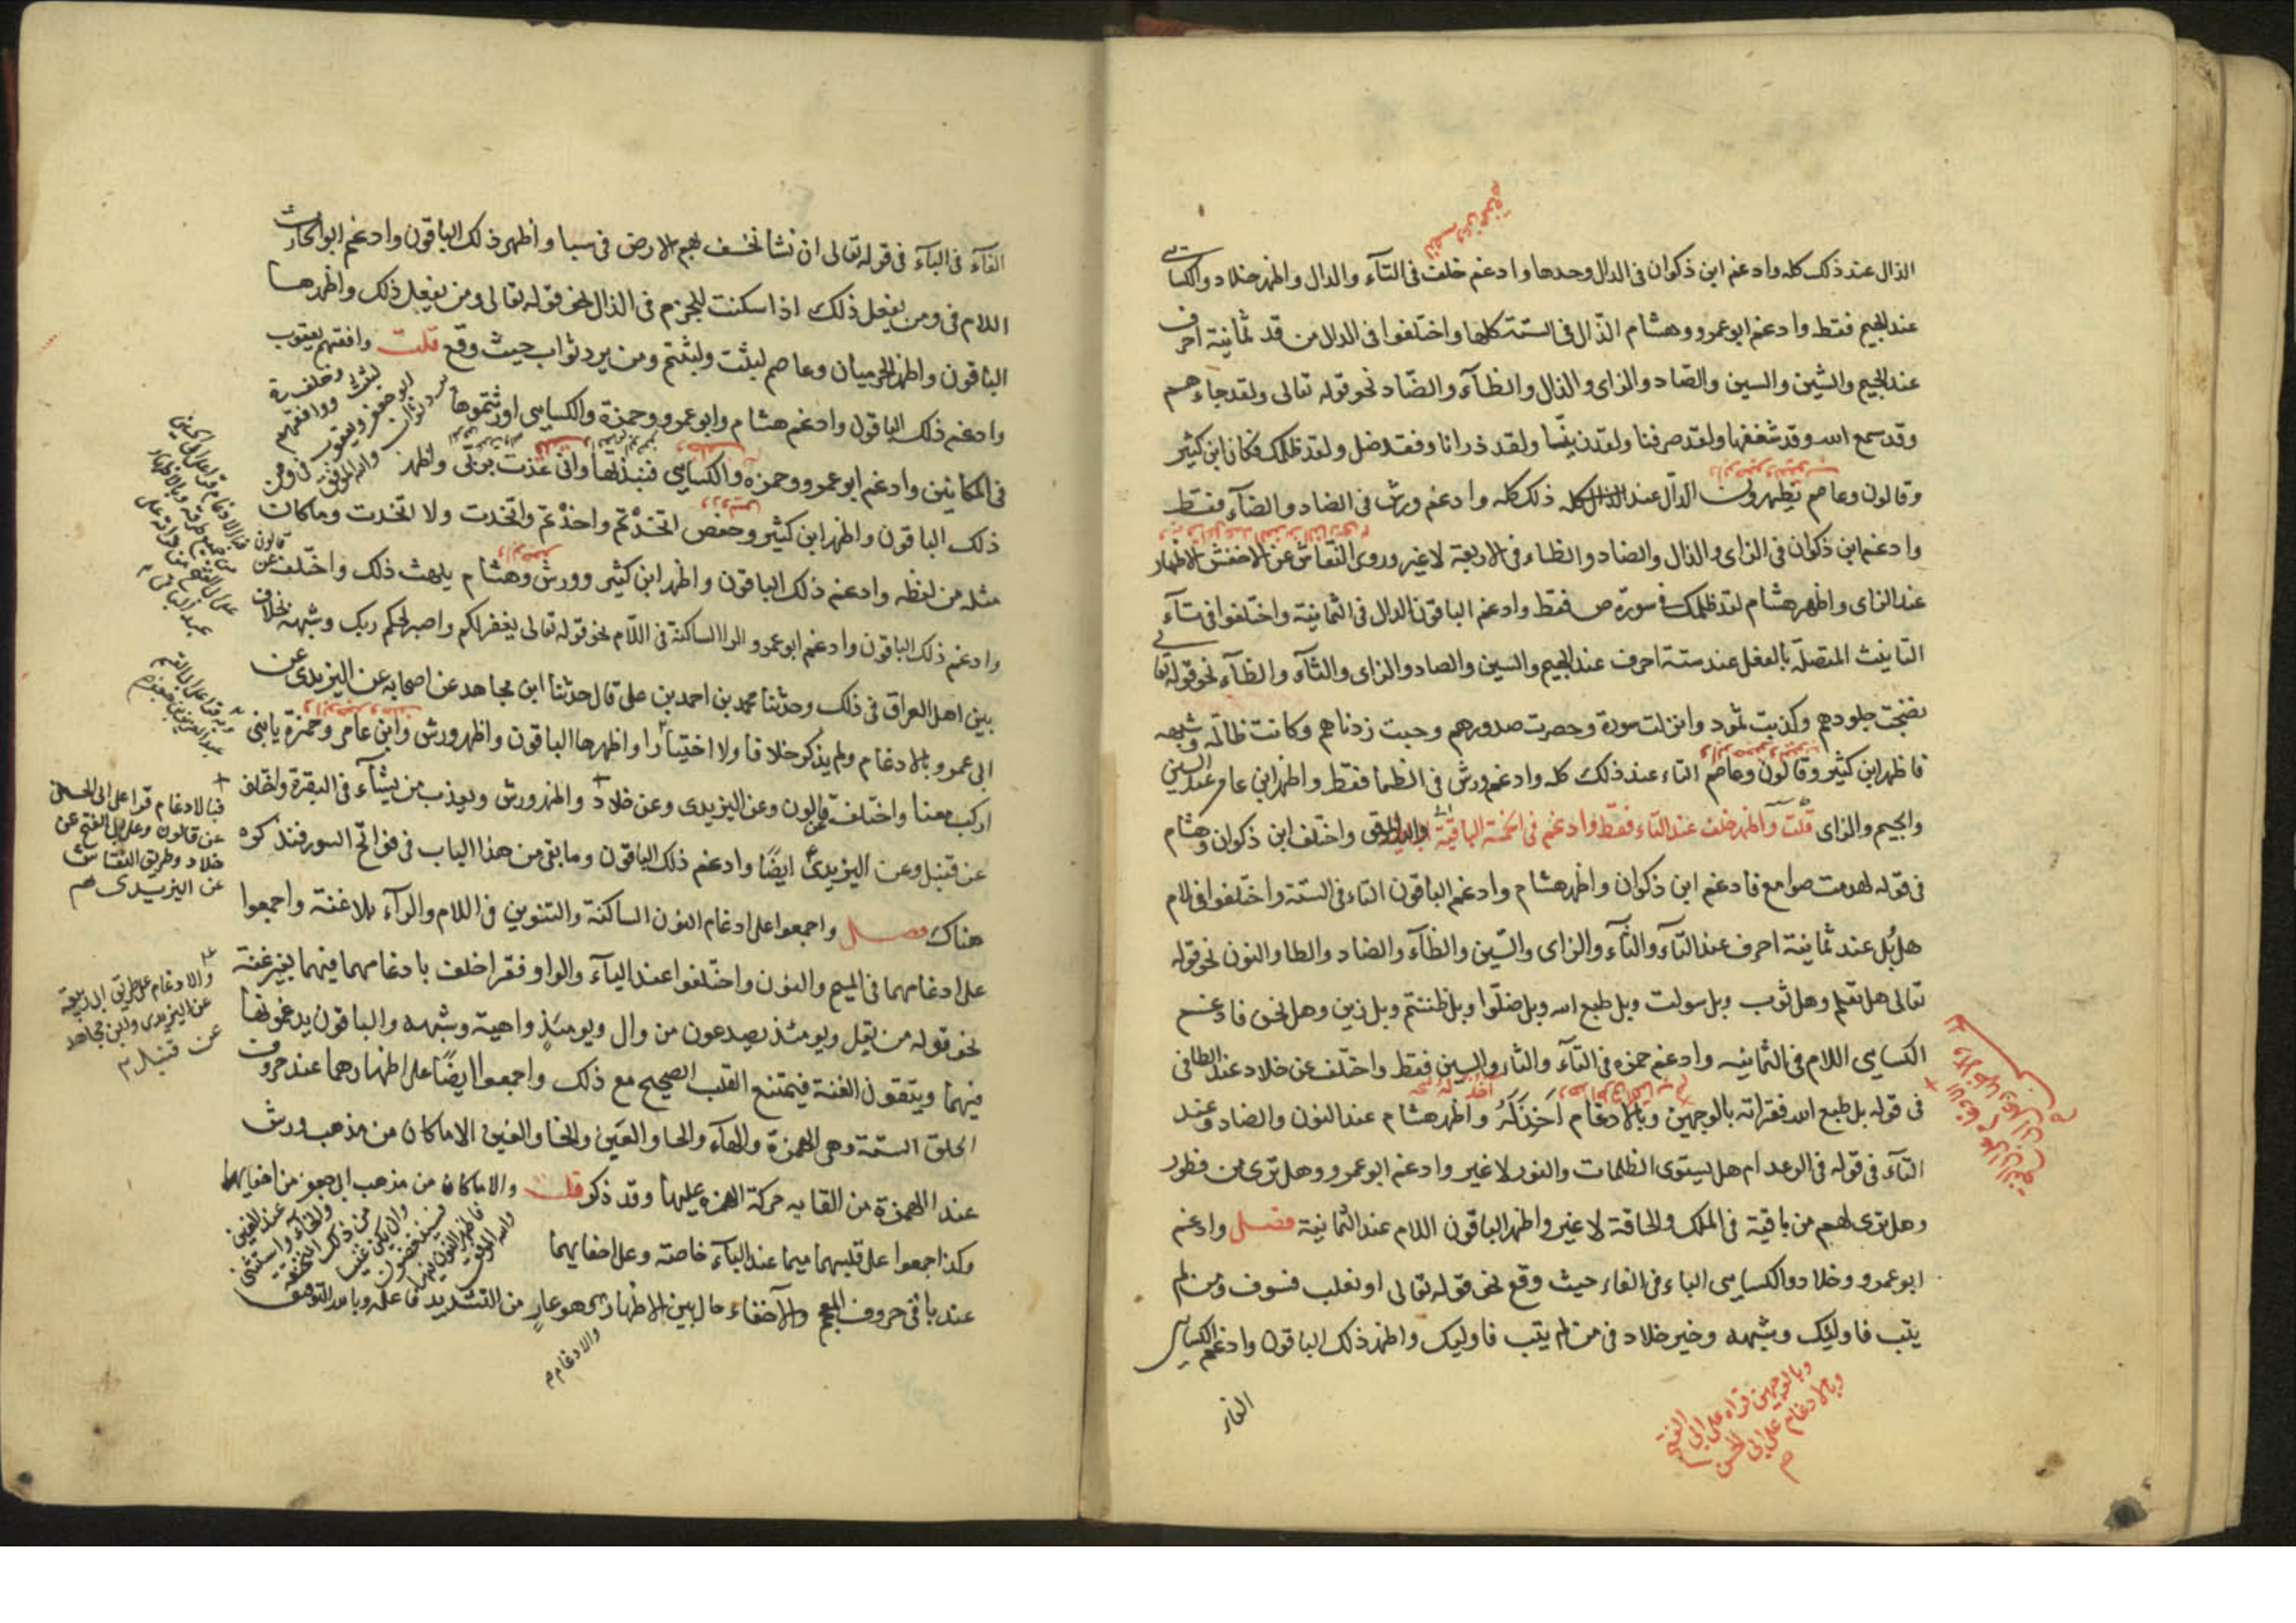 الذال عند ذلك كله وادغم ابن ذكوان في الدال وحدها وادغم خلف في التآء والدال واظهر خلاد والكساسي
عند الجيم فقط وادغم ابو عمرو وهشام الذال في الستة كلها واختلفوا في الدال من قد ثمانية احرف
عند الجيم والشين والسين والصاد والزاى والذال والظآء والضاد نحو قوله تعالى ولقد جاءهم
وقد سمع الله وقد شغفها ولقد صرفنا ولقد زينّا ولقد ذرانا وفقد ضل ولقد ظلمك فكان ابن كثير
وقالون وعاصم يظهرون الدال عند ذلك كله وادغم ورش في الضاد والظآء فقط
وادغم ابن ذكوان في الزاى والذال والضاد والظاء في الاربعة لا غير وروى النقاش عن الاخفش الاظهار
عند الزاى واظهر هشام لقد ظلمك في سورة ص فقط وادغم الباقون الدال في الثمانية واختلفوا في تآء
التانيث المتصلة بالفعل عند ستة احرف عند الجيم والسين والصاد والزاى والثآء والظآء نحو قوله تعالى
نضجت جلودهم وكذبت ثمود وانزلت سورة وحصرت صدورهم وخبت زدناهم وكانت ظالمة وشبهه
فاظهر ابن كثير وقالون وعاصم التاء عند ذلك كله وادغم ورش في الظا فقط واظهر ابن عامر عند السين
والجيم والزاى قلت واظهر خلف عند الثاء فقط وادغم في الخمسة الباقية واختلف ابن ذكوان وهشام
في قوله لهدمت صوامع فادغم ابن ذكوان واظهر هشام وادغم الباقون التاء في الستة واختلفوا في لام
هل بل عند ثمانية احرف عند التآء والثآء والزاى والسّين والظآء والضاد والطا والنون نحو قوله
تعالى هل تعلم وهل ثوب وبل سولت وبل طبع الله وبل ضلّوا وبل ظننتم وبل زين وهل نحن فادغم
الكساسي اللام في الثمانيه وادغم حمزه في التآء والثا والسين فقط واختلف عن خلاد عند الطا في
في قوله بل طبع الله فقراته بالوجهين وبالادغام آخذ له واظهر هشام عند النون والضاد وعند
التآء في قوله في الرعد ام هل يستوى الظلمات والنور لا غير وادغم ابو عمرو وهل ترى من فطور
وهل ترى لهم من باقية في الملك والحاقة لا غير واظهر الباقون اللام عند الثمانية فصل وادغم
ابو عمرو وخلاد والكساسي الباء في الفاء حيث وقع نحو قوله تعالى او يغلب فسوف ومن لم
يتب فاوليك وشبهه وخير خلاد في من لم يتب فاوليك واظهر ذلك الباقون وادغم الكساسي
وبالوجهين قراه على ابي الفتح
وبالادغام على ابي الحسن
الفاء
الفآء في البآء في قوله تعالى ان نشا نخسف بهم الارض في سبا واظهر ذلك الباقون وادغم ابو الحارث
اللام في ومن يفعل ذلك اذا سكنت للجزم في الذال نحو قوله تعالى ومن يفعل ذلك واظهرها
الباقون واظهر الحرميان وعاصم لبثت ولبثتم ومن يرد ثواب حيث وقع قلت وافقهم يعقوب
وادغم ذلك الباقون وادغم هشام وابو عمرو وحمزة والكساسي اورثتموها
في المكانين وادغم ابو عمرو وحمزه والكساسي فنبذتها واني عذت بربي واظهر
ذلك الباقون واظهر ابن كثير وحفص اتخذتم واخذتم واتخذت ولا اتخذت وماكان
مثله من لفظه وادغم ذلك الباقون واظهر ابن كثير وورش وهشام يلهث ذلك واختلف عن قالون
وادغم ذلك الباقون وادغم ابو عمرو الرا الساكنة في اللّام نحو قوله تعالى يغفر لكم واصبر لحكم ربك وشبهه بخلاف
بين اهل العراق في ذلك وحدثنا محمد بن احمد بن على قال حدثنا ابن مجاهد عن اصحابه عن اليزيدى عن
ابى عمرو بالادغام ولم يذكر خلافا ولا اختيارا واظهرها الباقون واظهر ورش وابن عامر وحمزة يابنى
اركب معنا واختلف عن قالون وعن اليزيدى وعن خلاد واظهر ورش ويعذب من يشآء في البقرة واختلف
عن قنبل وعن اليزيدى ايضًا وادغم ذلك الباقون وما بقى من هذا الباب في فواتح السور فنذكره
هناك فصل واجمعوا على ادغام النون الساكنة والتنوين في اللام والرآء بلا غنة واجمعوا
على ادغامهما في الميم والنون واختلفوا عند اليآء والواو فقرا خلف بادغامهما فيهما بغير غنة
نحو قوله من يقل ويومئذ يصدعون من وال ويومئذٍ واهية وشبهه والباقون يدغمونها
فيهما ويبقون الغنة فيمتنع القلب الصحيح مع ذلك واجمعوا ايضًا على اظهارهما عند حروف
الحلق الستة وهى الهمزة والهآء والحا والعين والخا والغين الا ماكان من مذهب ورش
عند الهمزة من القايه حركة الهمزه عليها وقد ذكر قلت والا ماكان من مذهب ابى جعفر من اخفايهما
وكذا اجمعوا على قلبهما ميما عند البآء خاصة وعلى اخفايهما
عند باقى حروف المعجم والاخفاء حال بين الاظهار وهو عارٍ من التشديد فاعلمه وبالله التوفيق
والادغام م
فبالادغام قرا على ابى الحسن
عن قالون وعلى ابى الفتح عن
خلاد وطريق النقاش
عن اليزيدى
والادغام على طريق ابى ربيعة
عن اليزيدى وابن مجاهد
عن قنبل م